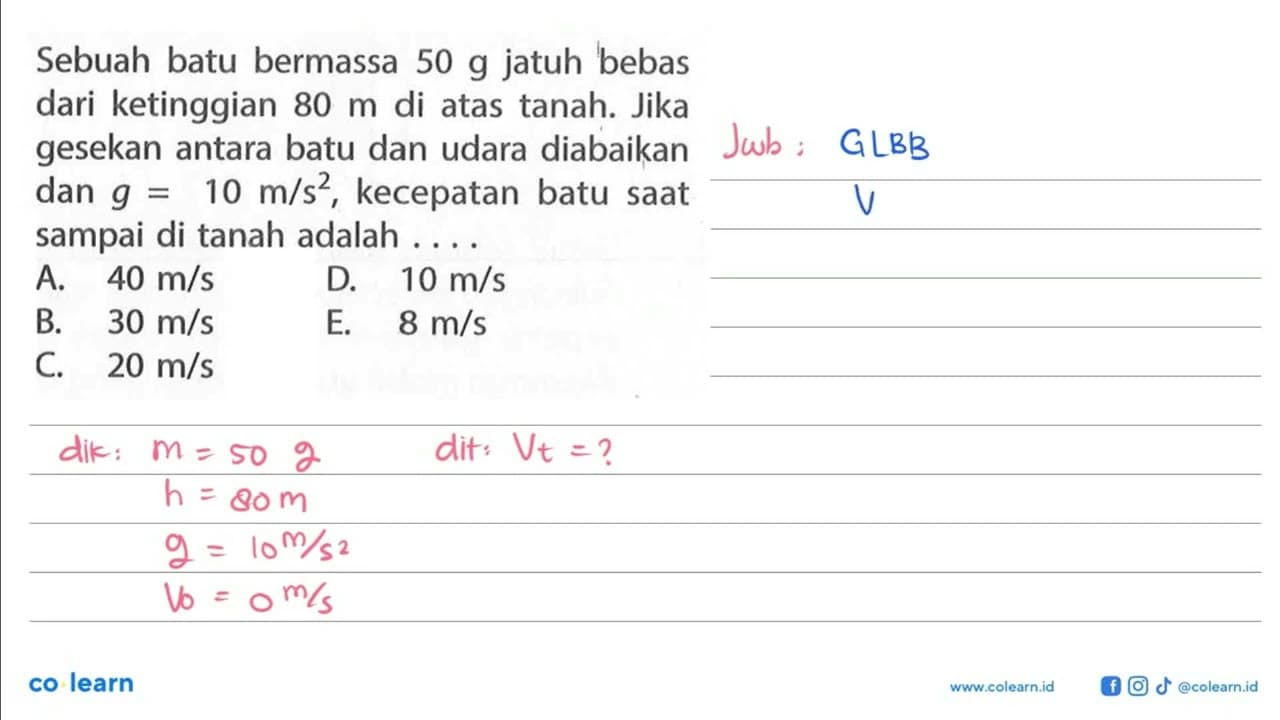 Sebuah batu bermassa 50 g jatuh bebas
dari ketinggian 80 m di atas tanah. Jika
gesekan antara batu dan udara diabaikan
dan g = 10 m/s², kecepatan batu saat
sampai di tanah adalah . . . .
A. 40 m/s D. 10 m/s
B. 30 m/s E. 8 m/s
C. 20 m/s
Jwb : GLBB
V
dik: m = 50 g dit: Vt = ?
h = 80 m
g = 10 m/s²
Vo = 0 m/s
co learn
www.colearn.id @colearn.id